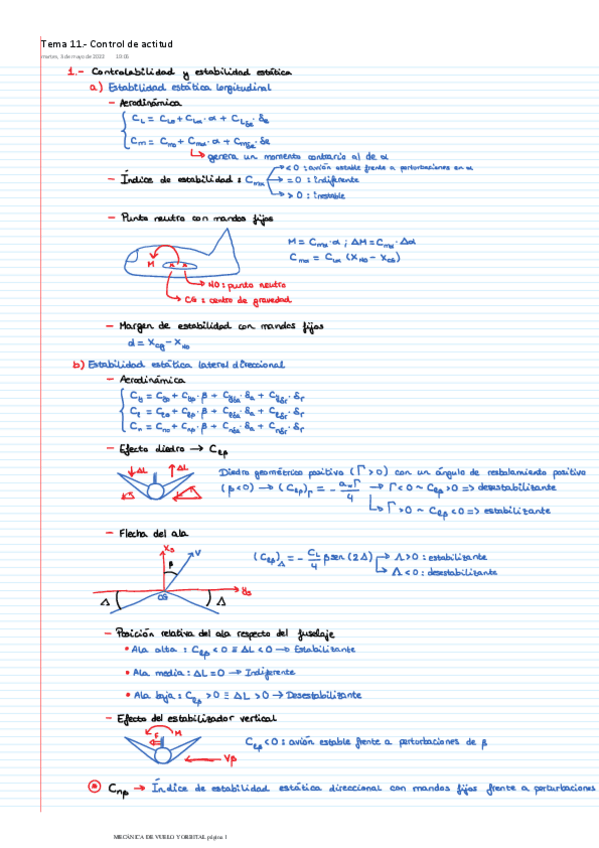 Tema 11.- Control de actitud
martes, 3 de mayo de 2022
1.- Controlabilidad y estabilidad estática
a) Estabilidad estática longitudinal
- Aerodinámica
C_L = C_L0 + C_Lα · α + C_Lδe · δe
C_m = C_m0 + C_mα · α + C_mδe · δe
genera un momento contrario al de α
< 0 : avión estable frente a perturbaciones en α
- Índice de estabilidad : C_mα = 0 : Indiferente
> 0 : inestable
- Punto neutro con mandos fijos
M = C_mα · α ; ΔM = C_mα · Δα
C_mα = C_Lα (X_NO - X_CG)
M
NO : punto neutro
CG : centro de gravedad
- Margen de estabilidad con mandos fijos
d = X_cg - X_NO
b) Estabilidad estática lateral direccional
- Aerodinámica
- Efecto diedro → C_lβ
ΔL ↑ΔL
Diedro geométrico positivo (Γ > 0) con un ángulo de resbalamiento positivo
(β < 0) → (C_lβ)_Γ = - a_wΓ/4 → Γ < 0 ~ C_lβ > 0 => desestabilizante
Γ > 0 ~ C_lβ < 0 => estabilizante
- Flecha del ala
x_s V
β
(C_lβ)_Λ = - C_L/4 β sen (2Λ) Λ > 0 : estabilizante
Λ < 0 : desestabilizante
y_s
Λ CG Λ
- Posición relativa del ala respecto del fuselaje
• Ala alta : C_lβ < 0 ≡ ΔL < 0 → Estabilizante
• Ala media : ΔL = 0 → Indiferente
• Ala baja : C_lβ > 0 ≡ ΔL > 0 → Desestabilizante
- Efecto del estabilizador vertical
F M
C_lβ < 0 : avión estable frente a perturbaciones de β
Vβ
C_nβ → Índice de estabilidad estática direccional con mandos fijos frente a perturbaciones
MECÁNICA DE VUELO Y ORBITAL página 1